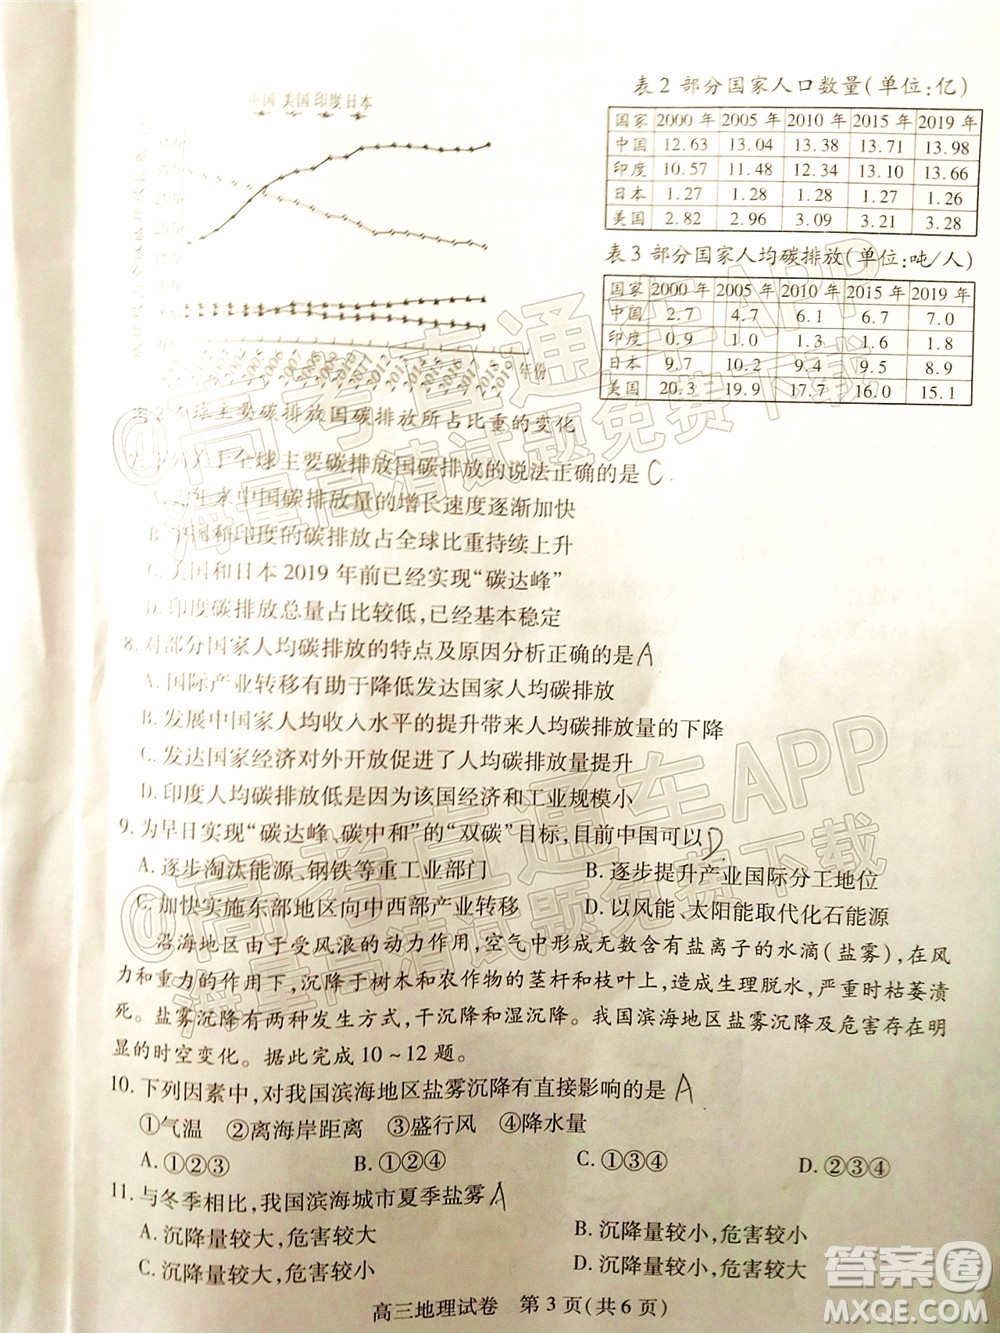 中国 美国 印度 日本
表2 部分国家人口数量(单位:亿)
国家 2000年 2005年 2010年 2015年 2019年
中国 12.63 13.04 13.38 13.71 13.98
印度 10.57 11.48 12.34 13.10 13.66
日本 1.27 1.28 1.28 1.27 1.26
美国 2.82 2.96 3.09 3.21 3.28
表3 部分国家人均碳排放(单位:吨/人)
国家 2000年 2005年 2010年 2015年 2019年
中国 2.7 4.7 6.1 6.7 7.0
印度 0.9 1.0 1.4 1.6 1.8
日本 9.7 10.2 9.4 9.5 8.9
美国 20.3 19.9 17.7 16.0 15.1
年份
全球主要碳排放国碳排放所占比重的变化
全球主要碳排放国碳排放的说法正确的是 C
中国碳排放量的增长速度逐渐加快
B. 中国和印度的碳排放占全球比重持续上升
C. 美国和日本2019年前已经实现“碳达峰”
D. 印度碳排放总量占比较低,已经基本稳定
8. 对部分国家人均碳排放的特点及原因分析正确的是 A
A. 国际产业转移有助于降低发达国家人均碳排放
B. 发展中国家人均收入水平的提升带来人均碳排放量的下降
C. 发达国家经济对外开放促进了人均碳排放量提升
D. 印度人均碳排放低是因为该国经济和工业规模小
9. 为早日实现“碳达峰、碳中和”的“双碳”目标,目前中国可以 D
A. 逐步淘汰能源、钢铁等重工业部门 B. 逐步提升产业国际分工地位
C. 加快实施东部地区向中西部产业转移 D. 以风能、太阳能取代化石能源
沿海地区由于受风浪的动力作用,空气中形成无数含有盐离子的水滴(盐雾),在风
力和重力的作用下,沉降于树木和农作物的茎杆和枝叶上,造成生理脱水,严重时枯萎溃
死。盐雾沉降有两种发生方式,干沉降和湿沉降。我国滨海地区盐雾沉降及危害存在明
显的时空变化。据此完成10~12题。
10. 下列因素中,对我国滨海地区盐雾沉降有直接影响的是 A
①气温 ②离海岸距离 ③盛行风 ④降水量
A. ①②③ B. ①②④ C. ①③④ D. ②③④
11. 与冬季相比,我国滨海城市夏季盐雾 A
A. 沉降量较大,危害较大 B. 沉降量较小,危害较小
C. 沉降量较大,危害较小 D. 沉降量较小,危害较大
高三地理试卷 第3页(共6页)
@高考直通车APP
海量高清试题免费下载
@高考直通车APP
海量高清试题免费下载
答案圈
MXQE.COM